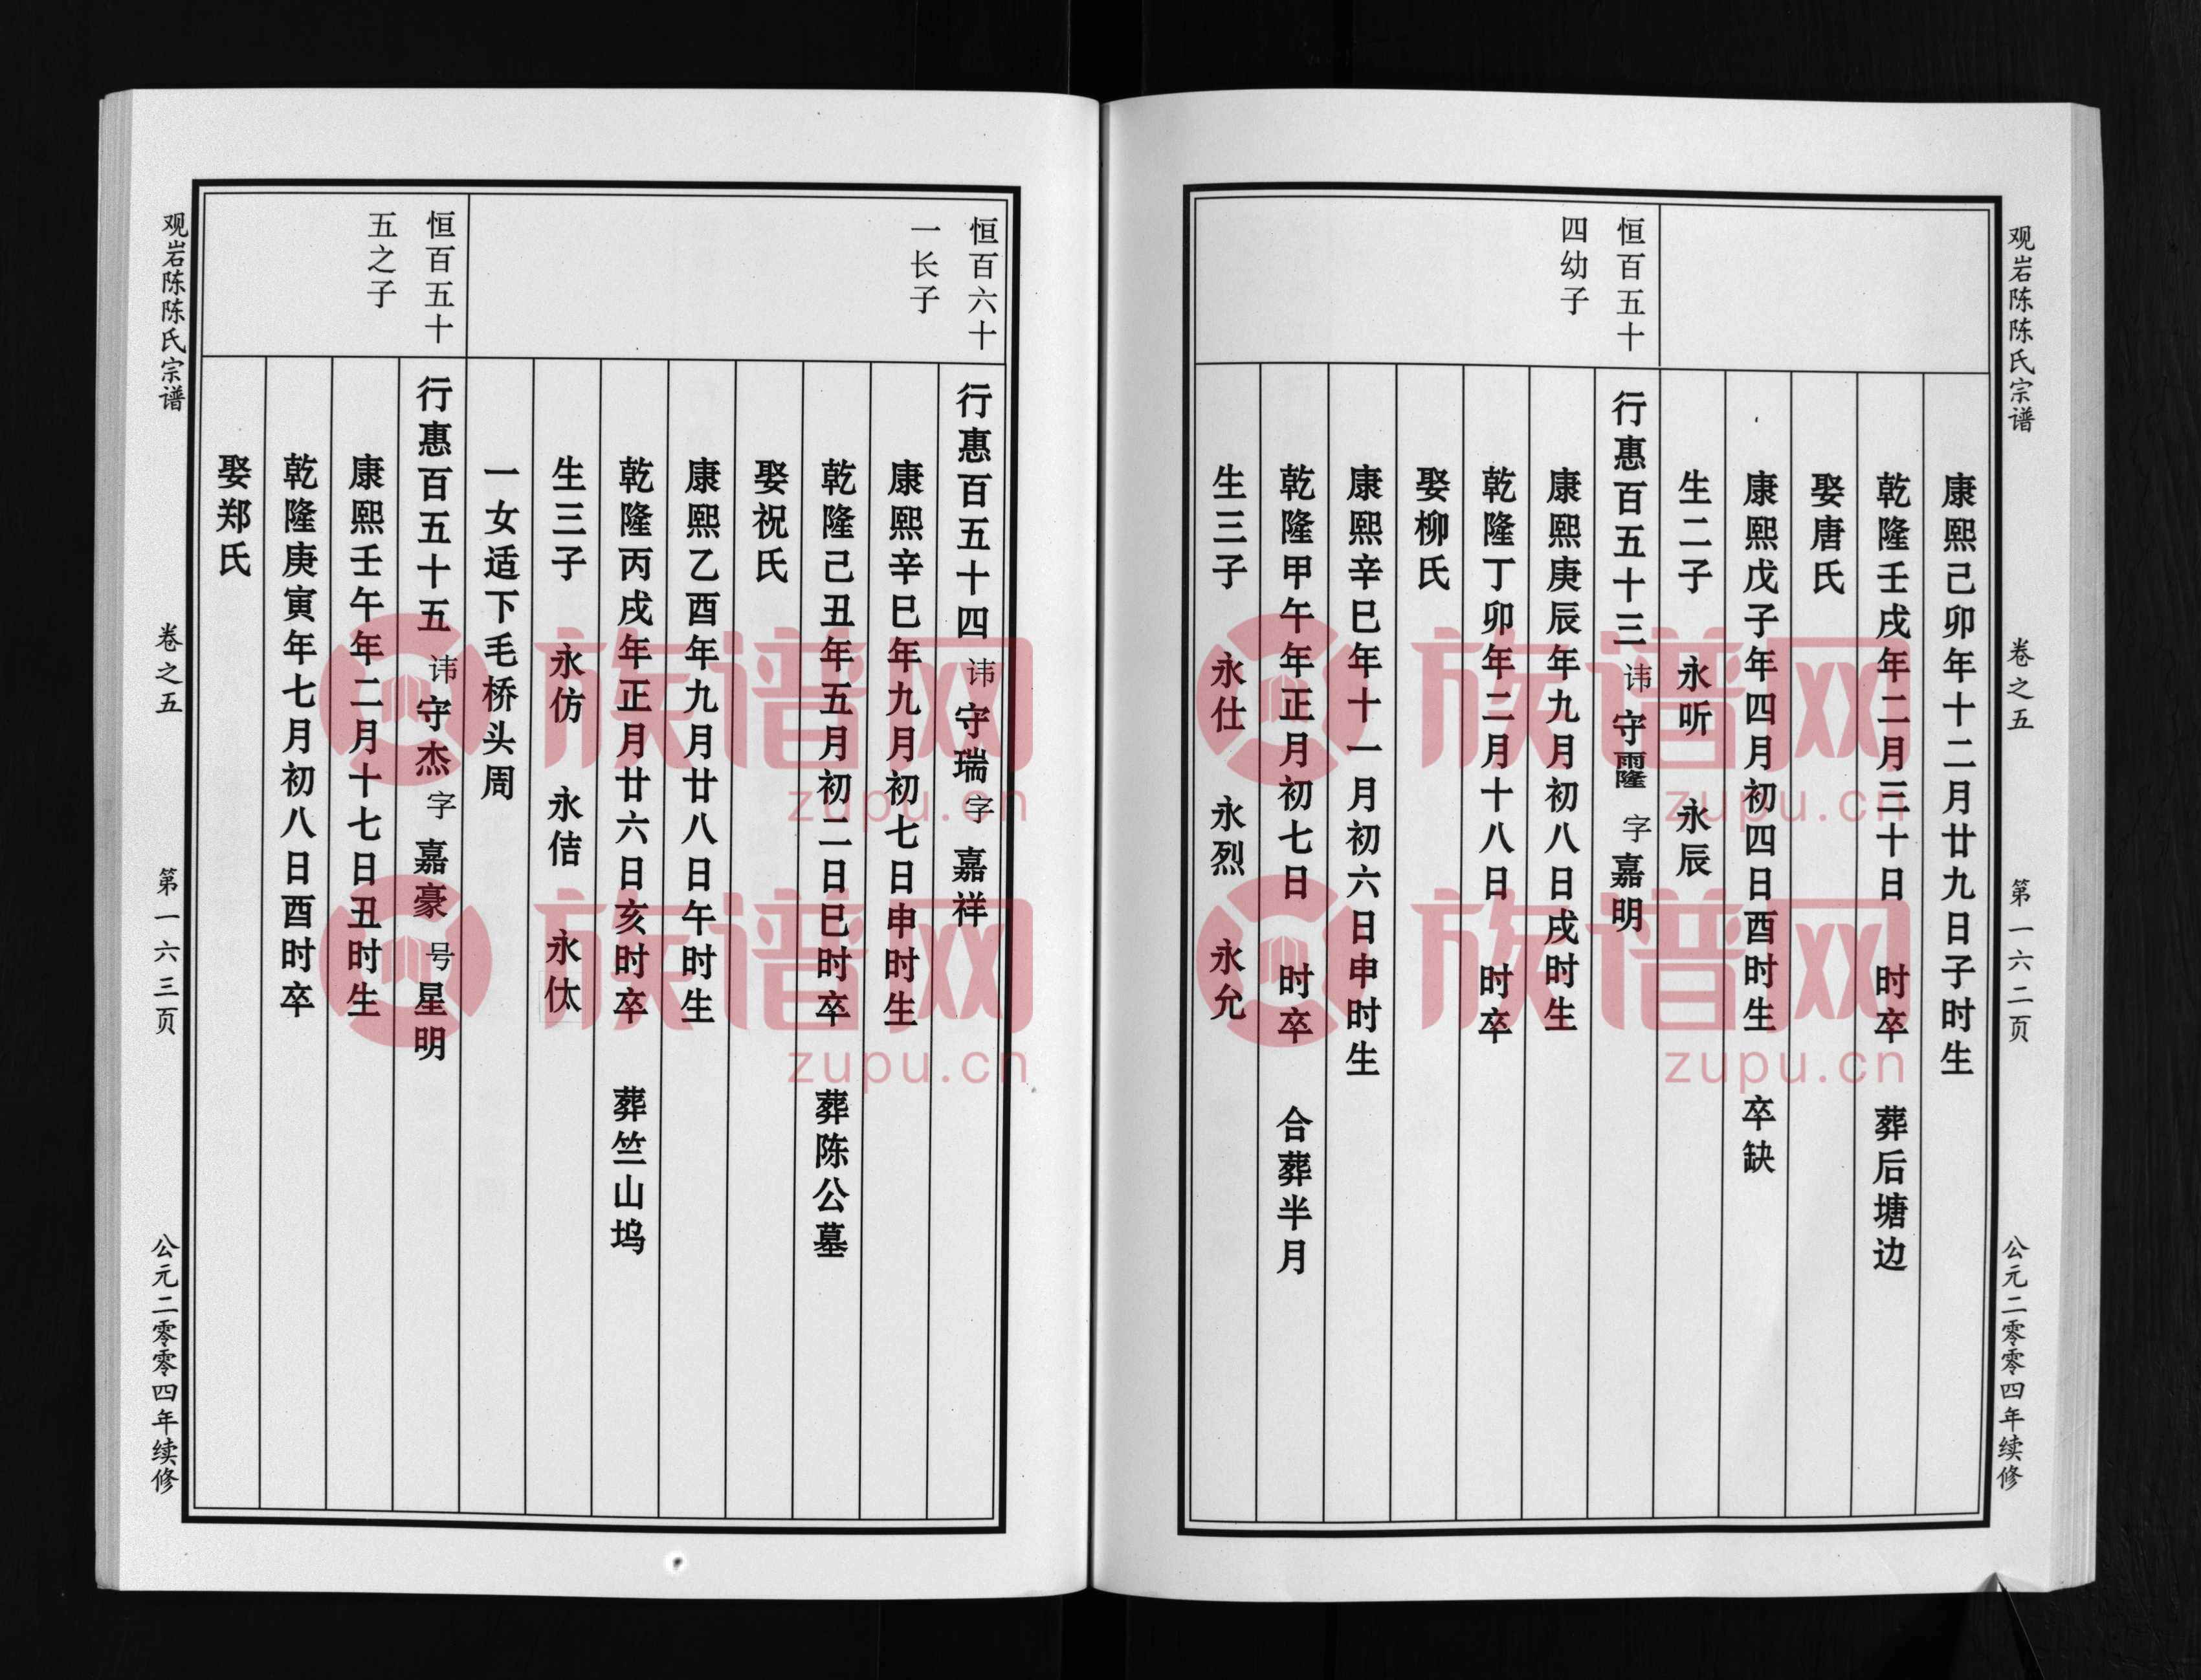 观岩陈陈氏宗谱 卷之五 第一六二页 公元二零零四年续修
康熙己卯年十二月廿九日子时生
乾隆壬戌年二月三十日 时卒 葬后塘边
娶唐氏
康熙戊子年四月初四日酉时生 卒缺
生二子 永听 永辰
恒百五十
四幼子
行惠百五十三 讳 守霳 字 嘉明
康熙庚辰年九月初八日戌时生
乾隆丁卯年二月十八日 时卒
娶柳氏
康熙辛巳年十一月初六日申时生
乾隆甲午年正月初七日 时卒 合葬半月
生三子 永仕 永烈 永允
恒百六十
一长子
行惠百五十四 讳 守瑞 字 嘉祥
康熙辛巳年九月初七日申时生
乾隆己丑年五月初二日巳时卒 葬陈公墓
娶祝氏
康熙乙酉年九月廿八日午时生
乾隆丙戌年正月廿六日亥时卒 葬竺山坞
生三子 永仿 永佶 永㑀
一女适下毛桥头周
恒百五十
五之子
行惠百五十五 讳 守杰 字 嘉豪 号 星明
康熙壬午年二月十七日丑时生
乾隆庚寅年七月初八日酉时卒
娶郑氏
观岩陈陈氏宗谱 卷之五 第一六三页 公元二零零四年续修
族谱网
zupu.cn
族谱网
zupu.cn
族谱网
zupu.cn
族谱网
zupu.cn